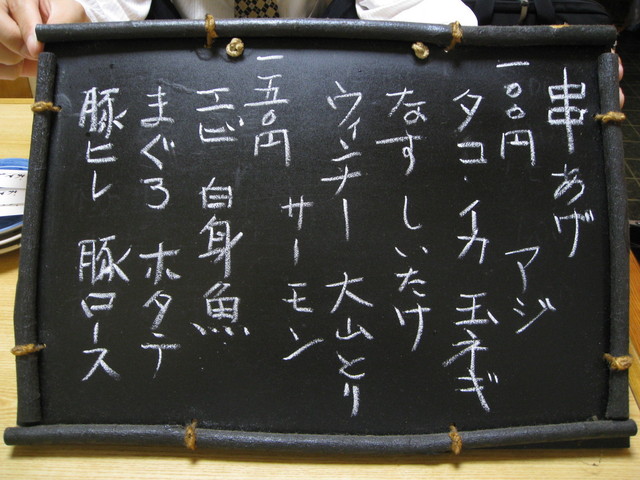 串あげ
一〇〇円 アジ
タコ・イカ 玉ネギ
なす しいたけ
ウィンナー 大山とり
一五〇円 サーモン
エビ 白身魚
まぐろ ホタテ
豚ヒレ 豚ロース